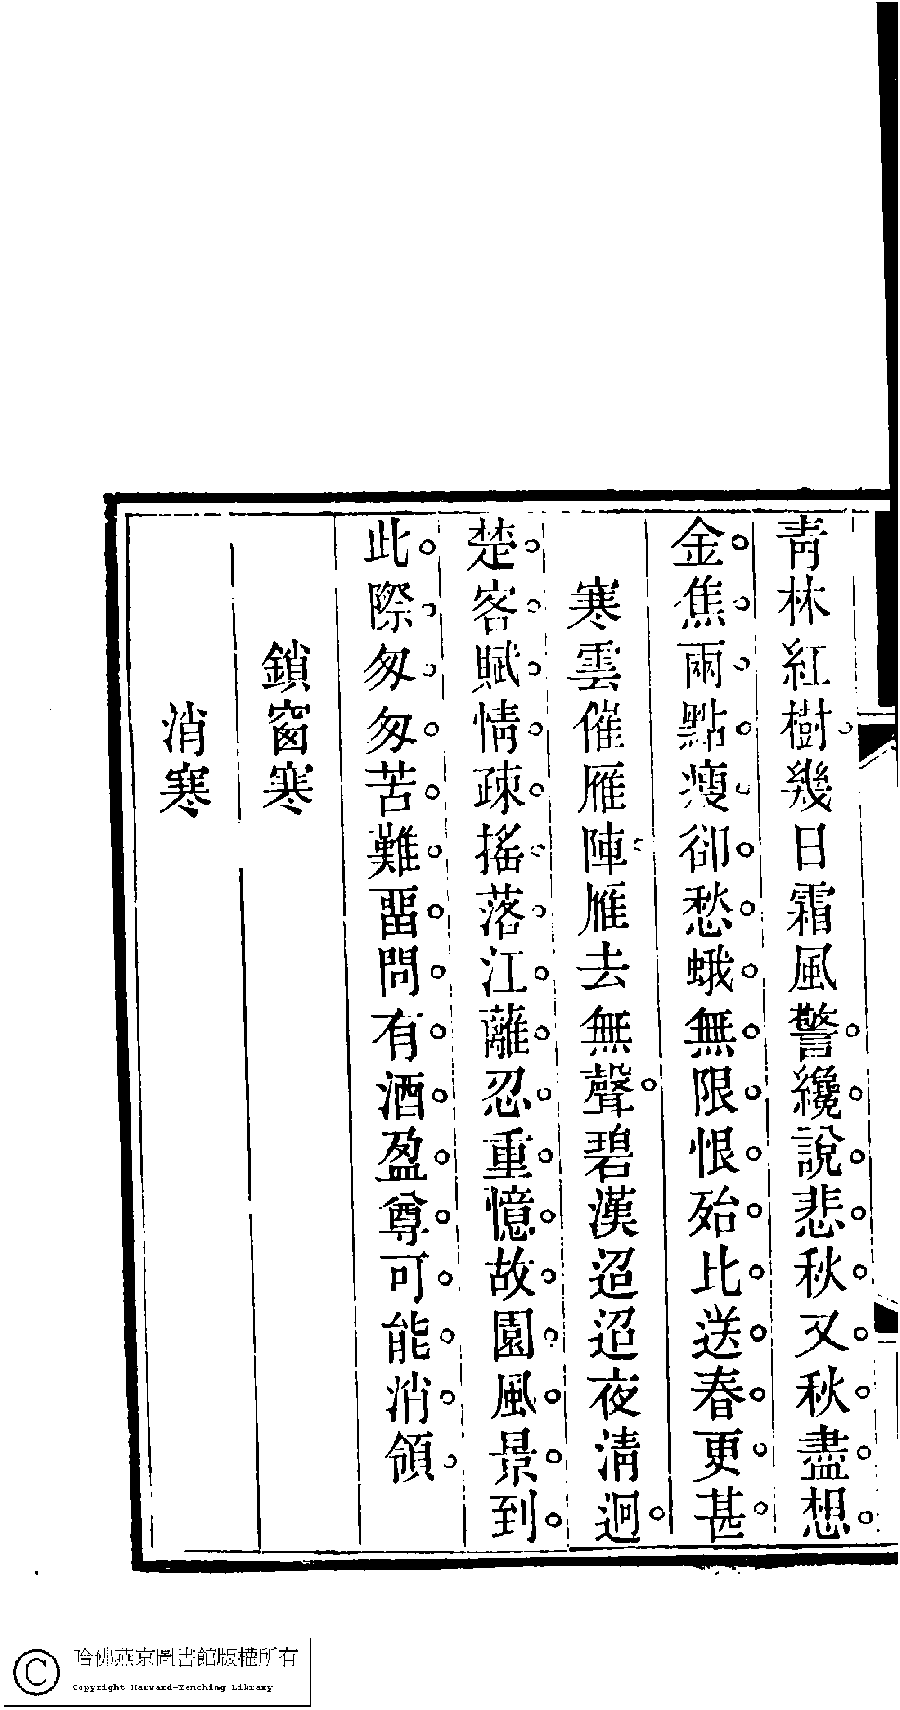 青林紅樹幾日霜風警纔說悲秋又秋盡想
金焦兩點瘦卻愁蛾無限恨殆比送春更甚
寒雲催雁陣雁去無聲碧漢迢迢夜清迥
楚客賦情疎搖落江蘺忍重憶故園風景到
此際匆匆苦難畱問有酒盈尊可能消領
鎖窗寒
消寒
哈佛燕京圖書館版權所有
Copyright Harvard-Yenching Library